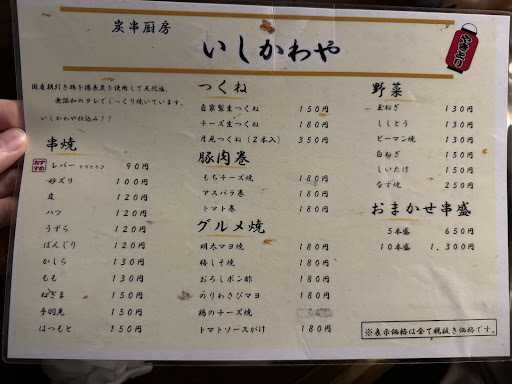 炭串厨房
いしかわや
やきとり
国産朝引き鶏を備長炭を使用して天然塩、
無添加のタレでじっくり焼いています。
いしかわや仕込み!!
串焼
おすすめ レバー とろとろさ 90円
砂ズリ 100円
皮 120円
ハツ 120円
うずら 120円
ぼんじり 120円
かしら 130円
もも 130円
ねぎま 150円
手羽先 150円
はつもと 150円
つくね
自家製生つくね 150円
チーズ生つくね 180円
月見つくね(2本入) 350円
豚肉巻
もちチーズ焼 180円
アスパラ巻 180円
トマト巻 180円
グルメ焼
明太マヨ焼 180円
梅しそ焼 180円
おろしポン酢 180円
のりわさびマヨ 180円
鶏のチーズ焼
トマトソースがけ 180円
野菜
玉ねぎ 130円
ししとう 130円
ピーマン焼 130円
白ねぎ 150円
しいたけ 150円
なす焼 250円
おまかせ串盛
5本盛 650円
10本盛 1,300円
※表示価格は全て税抜き価格です。